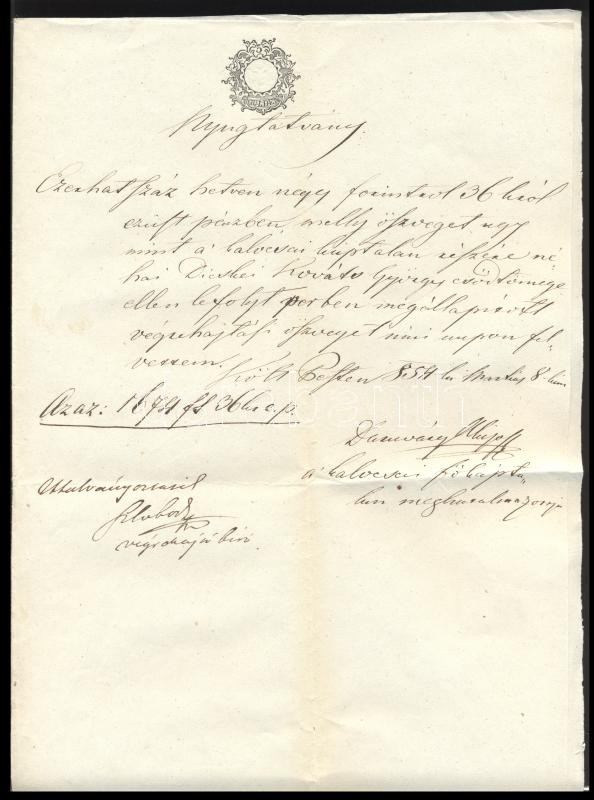 2
GULDEN
Nyugtatvány.
Ezerhatszáz hetven négy forintrol 36 król
ezüst pénzben, melly öszveget ugy
mint a' kalocsai káptalan részére né-
hai Kováts György csődtömege
ellen lefolyt perben megállapított
végrehajtási öszveget mai napon fel-
vettem.
Költ Pesten 854 ki Martius 8-kán
Azaz: 1674 ft 36 kr e. p.
a' kalocsai főkápta-
lan meghatalmazottja
végrehajtó biró